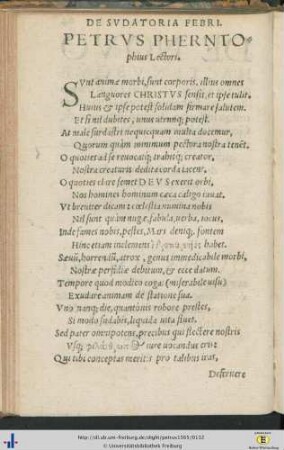 DE SVDATORIA FEBRI.
PETRVS PHERNTO-
phius Lectori.
SVnt animæ morbi, sunt corporis, illius omnes
Languores CHRISTVS sensit, et ipse tulit.
Huius & ipse potest solidam firmare salutem.
Et si nil dubites, unus utrunq; potest.
At male surdastri nequicquam multa docemur,
Quorum quàm minimum pectora nostra tenẽt.
O quoties ad se reuocatq; trahitq; creator,
Nostra creaturis dedita corda iacent,
O quoties clare semet DEVS exerit orbi,
Nos homines hominum cæca caligo iuuat.
Vt breuiter dicam: cœlestia numina nobis
Nil sunt quàm nugæ, fabula, uerba, iocus.
Inde fames nobis, pestes, Mars deniq; fontem
Hinc etiam inclementi habet.
Sæuũ, horrendũ, atrox, genus immedicabile morbi,
Nostræ perfidiæ debitum, & ecce datum.
Tempore quod modico cogat (miserabile uisu)
Exudare animam de statione sua.
Vno nanq; die, quantõuis robore prestes,
Si modo sudabis, liquida uita fluet.
Sed pater omnipotens, precibus qui flectere nostris
Vsq; & iure uocandus eris:
Qui tibi conceptas meritis pro talibus iras,
Deseruere
http://dl.ub.uni-freiburg.de/diglit/petrus1565/0152
© Universitätsbibliothek Freiburg